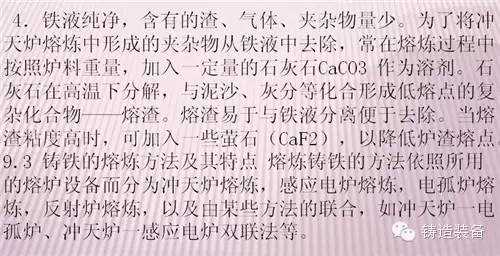 4. 铁液纯净，含有的渣、气体、夹杂物量少。为了将冲
天炉熔炼中形成的夹杂物从铁液中去除，常在熔炼过程中
按照炉料重量，加入一定量的石灰石CaCO3 作为溶剂。石
灰石在高温下分解，与泥沙、灰分等化合形成低熔点的复
杂化合物——熔渣。熔渣易于与铁液分离便于去除。当熔
渣粘度高时，可加入一些萤石（CaF2），以降低炉渣熔点。
9.3 铸铁的熔炼方法及其特点 熔炼铸铁的方法依照所用
的熔炉设备而分为冲天炉熔炼，感应电炉熔炼，电孤炉熔
炼，反射炉熔炼，以及由某些方法的联合，如冲天炉一电
孤炉、冲天炉一感应电炉双联法等。
铸造装备